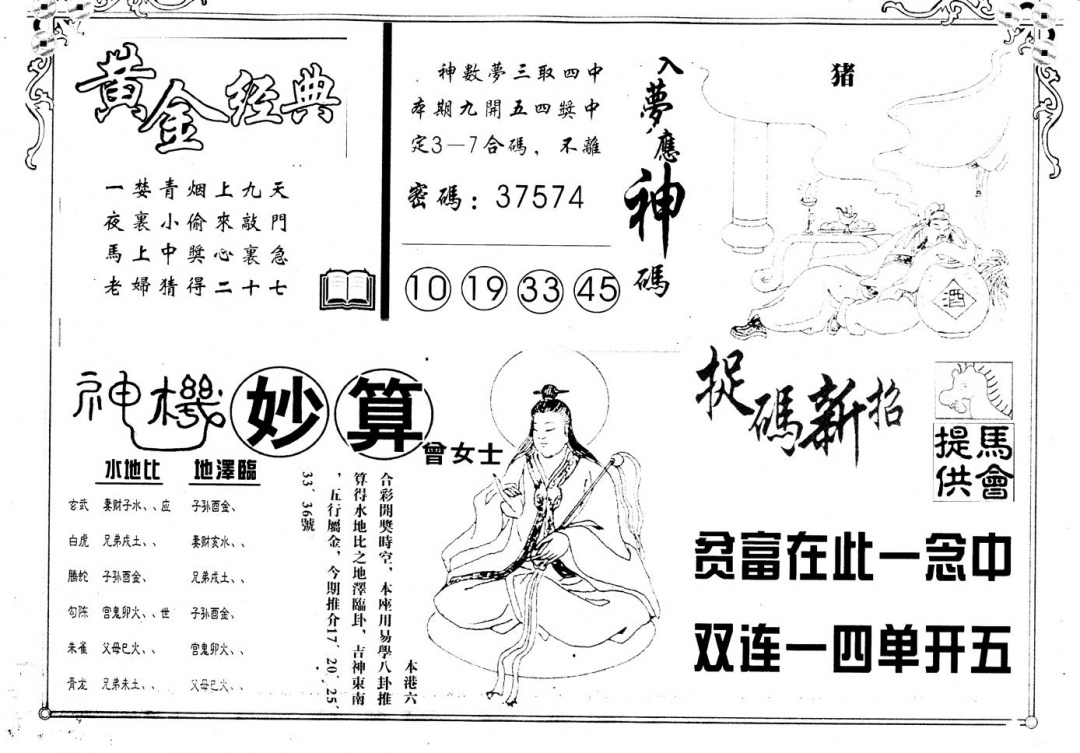 黄金经典
一婪青烟上九天
夜裏小偷來敲門
馬上中獎心裏急
老婦猜得二十七
神數夢三取四中
本期九開五四獎中
定3—7合碼，不離
密碼：37574
10 19 33 45
入夢應神碼
猪
酒
神機妙算
曾女士
水地比 地澤臨
玄武 妻财子水、、应 子孙酉金、
白虎 兄弟戌土、、 妻财亥水、、
螣蛇 子孙酉金、 兄弟戌土、、
勾陈 官鬼卯火、、世 子孙酉金、
朱雀 父母巳火、、 官鬼卯火、、
青龙 兄弟未土、、 父母巳火、、
本港六
合彩開獎時空，本座用易學八卦推
算得水地比之地澤臨卦，吉神東南
，五行屬金，今期推介17、20、25、
33、36號
捉碼新招
馬會
提供
贫富在此一念中
双连一四单开五